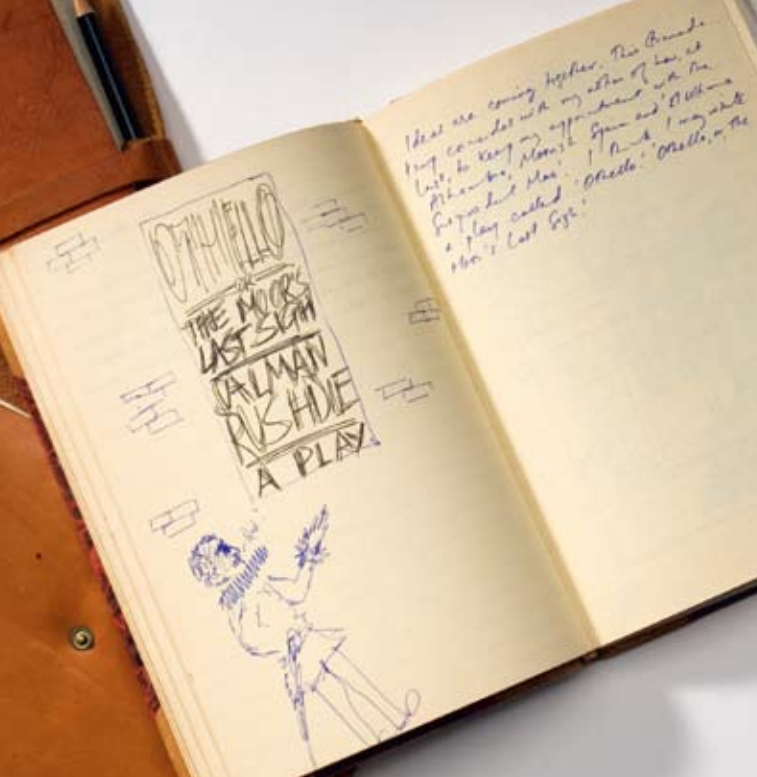 OTHELLO
OR
THE MOOR'S
LAST SIGH
SALMAN
RUSHDIE
A PLAY
Ideas are coming together. This Granada
thing coincides with my other of how, at
last, to keep my appointment with the
Alhambra, Moorish Spain and
I think I may write
a play called 'Othello'. 'Othello, or, the
Moor's Last Sigh'.